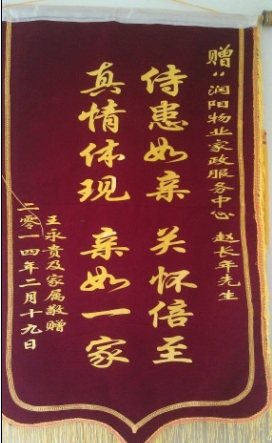 赠:润阳物业家政服务中心 赵长年先生
侍患如亲 关怀倍至
真情体现 亲如一家
王永贵及家属敬赠
二零一四年二月十九日